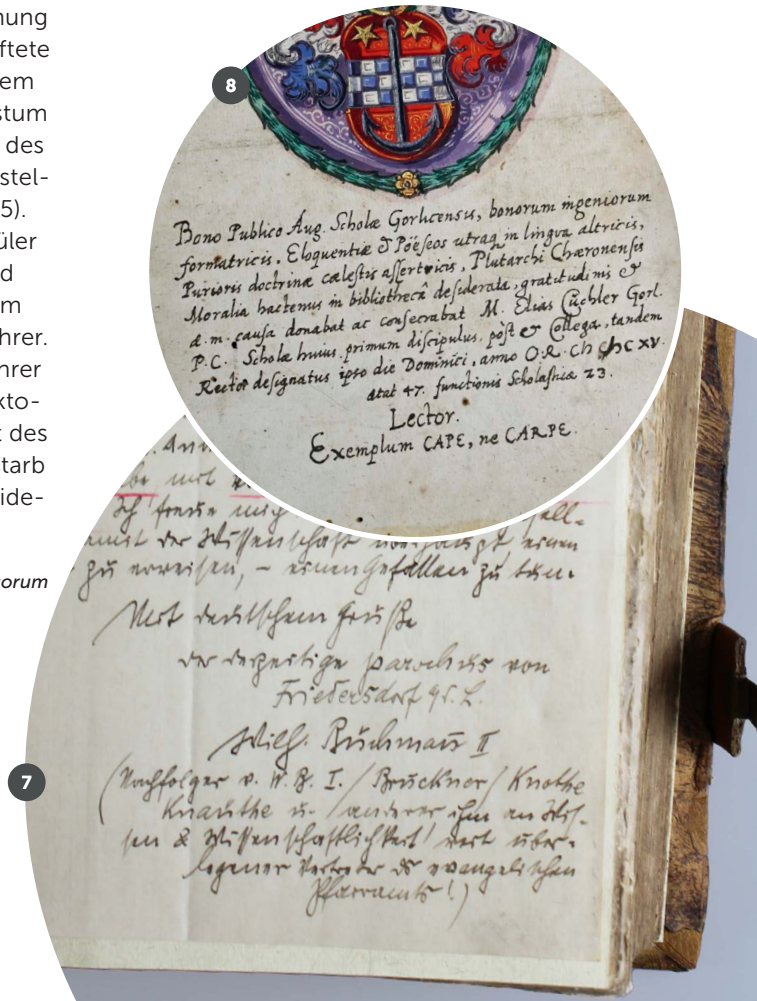 nung
ftete
em
stum
des
stel-
5).
üler
d
m
hrer.
hrer
kto-
t des
tarb
ide-
orum
8
Bono Publico Aug. Scholæ Gorlicensis, bonorum ingeniorum
formatricis, Eloquentiæ & Pöëseos utraq; in lingva altricis,
Purioris doctrinæ cælestis assertricis, Plutarchi Chæronensis
Moralia hactenus in bibliothecâ desiderata, gratitudinis &
a. m. causa donabat ac consecrabat M. Elias Cüchler Gorl.
P. C. Scholæ huius primum discipulus, pòst & Collega, tandem
Rector designatus ipso die Dominici, anno O. R.
ætat 47. functionis Scholasticæ 23.
Lector.
Exemplum CAPE, ne CARPE.
mit
Ich freue mich
damit der Wissenschaft überhaupt, einen
zu erweisen, – einen Gefallen zu tun.
Mit deutschem Gruße
der derzeitige parochus von
Friedersdorf
Wilh. Buchmann II
7
(Nachfolger v. W. B. I. / Bruckner / Knothe
Knauthe u. / anderer ihm an Wis-
sen & Wissenschaftlichkeit weit über-
legener Vertreter des evangelischen
Pfarramts!)